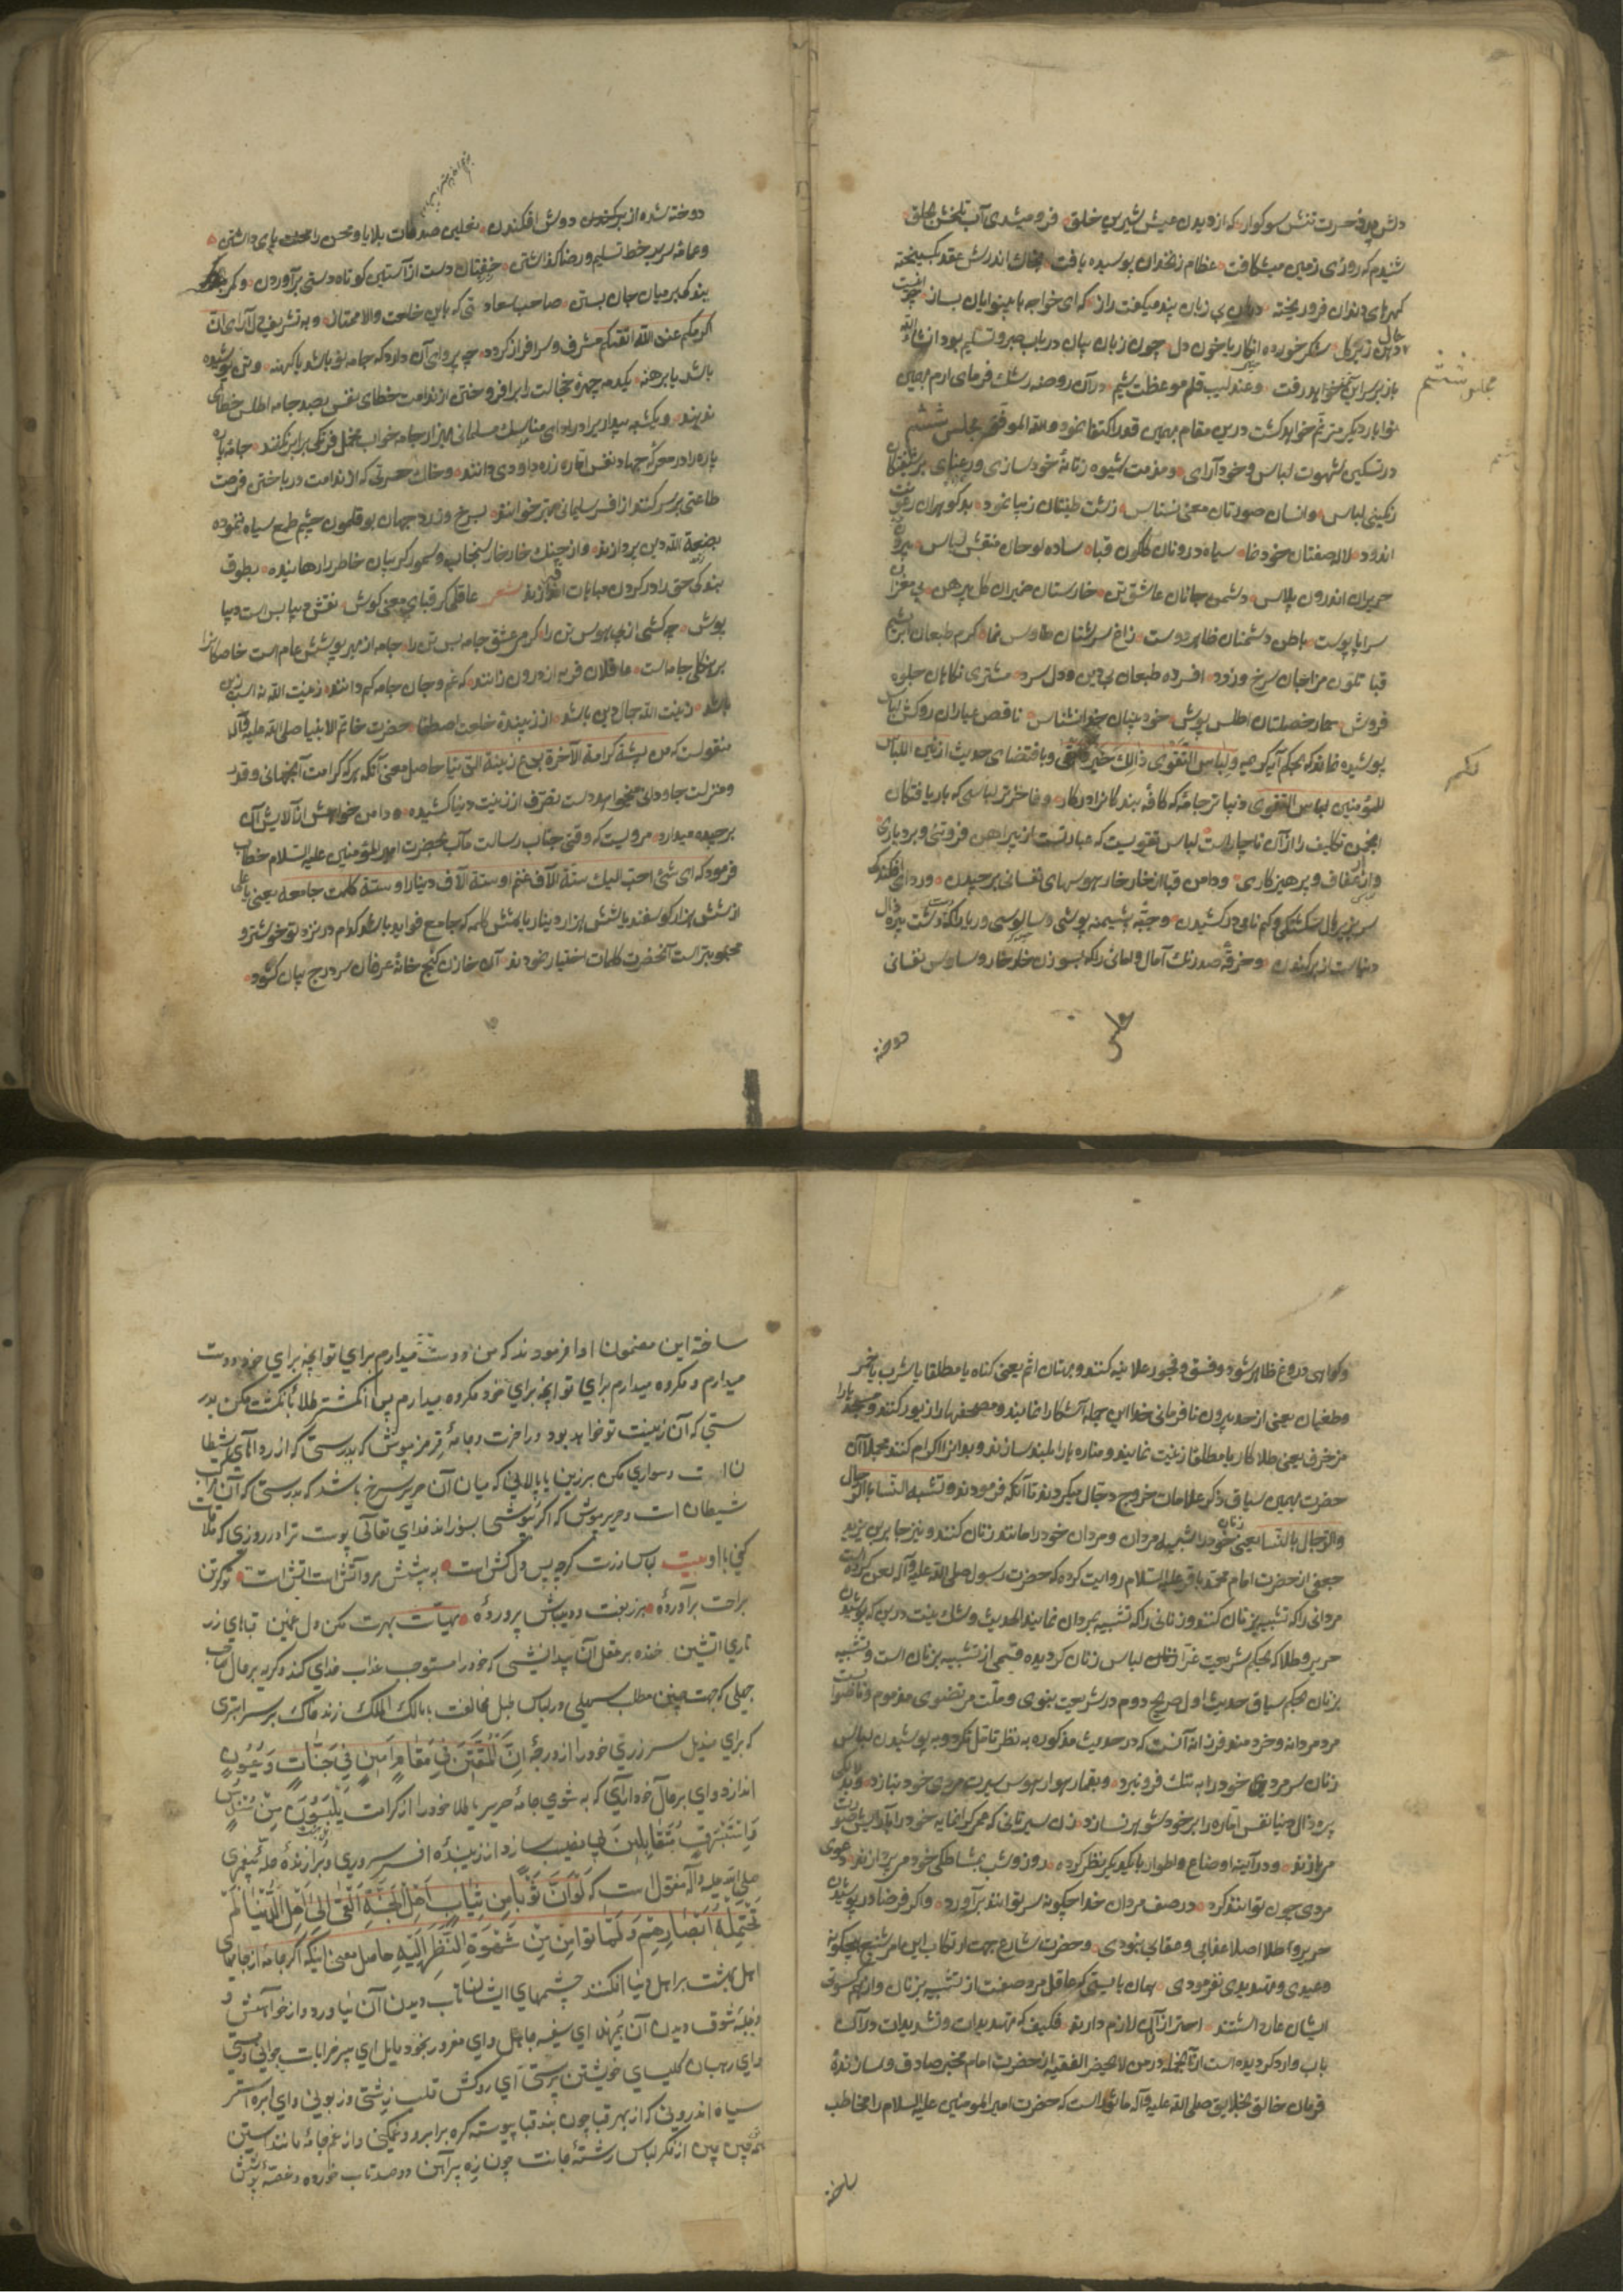 دلش پر از حسرت تنش سوکوار که از دیدن عیش شیرین خلق فرو میشدی آب تلخش بحلق
شنیدم که روزی زمین میشکافت عظام زنخدان پوسیده یافت بخاك اندرش عقد بکسیخته
کهرهای دندان فرو ریخته دهان بی زبان پند میکفت و راز که ای خواجه با بینوایی بساز چو اینست
حال دهن زیر کل شکر خورده انکار یا خون دل چون زبان بیان در باب صبر و تسلیم بود انشاء الله
باز بر سر این خواهد رفت و عندلیب قلم موعظت شیم در آن روضه رشك فرمای ارم بهمین
نوا بار دیکر مترنم خواهد کشت درین مقام بهمین قدر اکتفا نمود و الله الموفق مجلس ششم
در تسکین شهوت لباس و خودآرای و مذمت شیوه زنانهٔ خودسازی و رعنای بر شیفتکان
رنکینی لباس و انسان صورتان معنی نشناس زشت طینتان زیبا نمود بدکوهران
اندود لاله صفتان خودنما سیاه درونان کلکون قبا ساده لوحان منقش لباس بیرون
حریران اندرون پلاس دشمن جانان عاشق تن خارستان ضمیران کل پیرهن بی مغزان
سراپا پوست باطن دشمنان ظاهر دوست زاغ سرشتان طاوس نما کرم طبعان ابریشم
قبا تلون مزاجان سرخ و زرد افسرده طبعان بی دین و دل سرد مشتری نکاهان جلوه
فروش حمار خصلتان اطلس پوش خود بینان خدا نشناس ناقص عیاران روکش لباس
پوشیده نماند که بحکم آیه کریمه و لباس التقوی ذالك خیر و باقتضای حدیث ازین اللباس
للمؤمنین لباس التقوی زیباتر جامهٔ که کافهٔ بندکانرا در کار و فاخرتر لباسی که باریافتکان
انجمن تکلیف را از آن ناچار است لباس تقویست که عبارتست از پیراهن فروتنی و بردباری
و ازار عفاف و پرهیزکاری و دامن قبا از خار خار هوسهای نفسانی برچیدن و ردای افکندکی
سر بزیر بال شکستکی و کم نامی در کشیدن و جبّه پشیمنه پوشی و سالوسی و ریا
دنیاست از بر کندن و خرقهٔ صد رنك آمال و امانی را که بسوزن خار خار وساوس نفسانی
دوخته
مجلس ششم
دوخته شده از بر کندن و دوش افکندن نعلین صدمات بلایا و محن را تحت پای داشتن
و عمامه سر بر خط تسلیم و رضا کذاشتن خفتان دست از آستین کوتاه دستی برآوردن و کمر
بندکی بر میان جان بستن صاحب سعادتی که باین خلعت والا ممتاز و به تشریف دلآرای ان
اکرمکم عند الله اتقیکم مشرف و سرافراز کردد چه پروای آن دارد که جامه نو باشد یا کهنه و تن پوشیده
باشد یا برهنه یکدمه چهرهٔ خجالت را برافروختن از ندامت خطای نفس بصد جامه اطلس خطای
ندهند و یکشبه بیداریرا در ادای مناسك مسلمانی بهزار جامه خواب مخمل فرنکی برابر نکنند جامهٔ پاره
پاره را در معرکه جهاد نفس اماره زره داودی دانند و خاك حسرتی که از ندامت درباختن فرصت
طاعتی بر سر کنند از افسر سلیمانی بهتر خوانند بسرخ و زرد جهان بوقلمون چشم طمع سیاه ننموده
بصبغة الله دین پردازند و از چنك خار خار سنجاب و سمور کریبان خاطر را رهانیده بطوق
بندکی حق را در کردن مباهات اندازند شعر عاقلی کر قبای معنی کوش نقش دیبا بس است دیبا
پوش چه کشی از پی هوس تن را کرم عشق جامه بس تن را جامه از بهر پوشش عام است خاصکانرا
برهنکی جامه است عاقلان فربه از درون زانند که غم و جان جامه کم دانند زینت الله نه اسب زین
باشد زینت الله جمال دین باشد از زیبندهٔ خلعت اصطفا حضرت خاتم الانبیا صلی الله علیه و آله
منقولست که من یشته کرامة الآخرة یدع زینة الدنیا حاصل معنی آنکه هر که کرامت آنجهانی و قدر
و منزلت جاودانی میخواهد دست تصرف از زینت دنیا کشیده و دامن خواهش از آلایش آن
برچیده میدارد مرویست که وقتی جناب رسالت مآب بحضرت امیر المؤمنین علیه السلام خطاب
فرمود که ای شئ احب الیك ستة آلاف غنم او ستة آلاف دینار او ستة کلمات جامعه یعنی یا علی
از شش هزار کوسفند یا شش هزار دینار یا شش کلمه که جامع فواید باشد کدام در نزد تو خوشتر و
محبوبتر است آنحضرت کلمات اختیار نمودند آن خازن کنج خانهٔ عرفان سر درج بیان کشود
و کواهی دروغ ظاهر شود و فسق و فجور علانیه کنند و بهتان اثم یعنی کناه یا مطلقا یا شرب یا خمر
و طغیان یعنی از حد بیرون نافرمانی خدا این جمله آشکارا نمایند و مصحفها را زیور کنند و مسجد را
مزخرف یعنی طلا کار یا مطلقا زینت نمایند و مناره ها را بلند سازند و بدانرا اکرام کنند مجملا آن
حضرت بهمین سیاق ذکر علامات خروج دجال میکردند تا آنکه فرمودند و تشبه النسا بالرجال
والرجال بالنسا یعنی زنان خود را شبیه مردان و مردان خود را مانند زنان کنند و نیز جابر بن یزید
جعفی از حضرت امام محمد باقر علیه السلام روایت کرده که حضرت رسول صلی الله علیه و آله لعن کرده است
مردانی را که تشبیه بزنان کنند و زنانی را که تشبیه بمردان نمایند الحدیث و شك نیست درین که پوشیدن
حریر و طلا که بحکم شریعت غرّا لباس زنان کردیده قسمی از تشبیه بزنان است و تشبیه
بزنان بحکم سیاق حدیث اول صریح دوم در شریعت نبوی و ملت مرتضوی مذموم و ناصوابست
مرد مردانه و خردمند فرزانه آنست که در حدیث مذکوره به نظر تامل نکرد و به پوشیدن لباس
زنان سر مردی خود را به ننك فرو نبرد و بقمار هوا و هوس سیرت مردی خود نبازد و بدلاکی
پیر زال دنیا نفس اماره را بر خود شوهر نسازد زن سیرتانی که عمر کرانمایه خود را بآرایش صورت
میبازند و در آینه اوضاع و اطوار یکدیکر نظر کرده روز و شب بمشاطکی خود میپردازند دعوی
مردی چون توانند کرد در صف مردان خدا چکونه سر توانند برآورد و اکر فرضا در پوشیدن
حریر و طلا اصلا عذابی و عقابی نبودی و حضرت شارع جهت ارتکاب این امر شنیع بهیچکونه
وعیدی و تهدیدی نفرمودی همان بایستی که عاقل مرد صفت از تشبیه بزنان و از هم کسوتی
ایشان عار داشتند احتراز از آن لازم دارند فکیف که تهدیدات و تشدیدات در آن
باب وارد کردیده است از آنجمله در من لا یحضر الفقیه از حضرت امام مخبر صادق و رسانندهٔ
فرمان خالق بخلایق صلی الله علیه و آله ماثور است که حضرت امیر المومنین علیه السلام را مخاطب
ساخته
ساخته این مضمونرا ادا فرمودند که من دوست میدارم برای تو آنچه برای خود دوست
میدارم و مکروه میدارم برای تو آنچه برای خود مکروه میدارم پس انکشتر طلا بانکشت مکن بدر
ستی که آن زینت تو خواهد بود در آخرت و جامهٔ قرمز مپوش که بدرستی که از رداهای شیطا
ن است و سواری مکن بر زین یا پالانی که میان آن حریر سرخ باشد که بدرستی که آن مرکب
شیطان است و حریر مپوش که اکر پوشی بسوزاند خدای تعالی پوست ترا در روزی که ملاقات
کنی با او بیت لباس زرت کرچه بس دل کش است به پشش مرو آتش است آتش است تو کر تن
براحت برآوردهٔ بزربفت و دیباش پروردهٔ مهیّات بهرت مکن دل غمین قباهای زر
تاری آتشین خنده بر عقل آن بد اندیشی که خود را مستوجب عذاب خدای کند و کریه بر حال صاحب
جهلی که جهت چنین مطلب سهلی در لباس طبل مخالفت با مالك الملك زند خاك بر سر ابتری
که برای مندیل سر زری خود را از درجهٔ إِنَّ المُتَّقِينَ فِي مَقَامٍ أَمِينٍ فِي جَنَّاتٍ وَعُيُونٍ
اندازد و ای بر حال خودآرای که به شومی جامهٔ حریر یا طلا خود را از کرامت يَلْبَسُونَ مِنْ سُنْدُسٍ
وَإِسْتَبْرَقٍ مُتَقَابِلِينَ بی نصیب سازد از زیبندهٔ افسر سروری و برازندهٔ حلّهٔ پیغمبری
صلی الله علیه و آله منقول است که لَوْ أَنَّ ثَوْبًا مِنْ ثِيَابِ أَهْلِ الجَنَّةِ أُلْقِيَ إِلَى أَهْلِ الدُّنْيَا لَمْ
تَحْتَمِلْهُ أَبْصَارُهُمْ وَلَمَاتُوا مِنْ شَهْوَةِ النَّظَرِ إِلَيْهِ حاصل معنی اینکه اکر جامهٔ از جامهای
اهل بهشت بر اهل دنیا افکنند چشمهای ایشان تاب دیدن آن نیاورد و از خواهش و
غلبهٔ شوق دیدن آن بمیرند ای سفیه جاهل و ای مغرور بخود مایل ای پیر خرابات جوانی و مستی
و ای رهبان کلیسای خویشتن پرستی ای روکش قلب زشتی و زبونی و ای ابره آستر
سیاه اندرونی که از بهر قبا چون بند قبا پیوسته کره بر ابرو و غمکینی و از غم جامه مانند آستین
چین چین از فکر لباس رشتهٔ جانت چون زه پیراهن دو صد تاب خورده و غصّهٔ پوشش